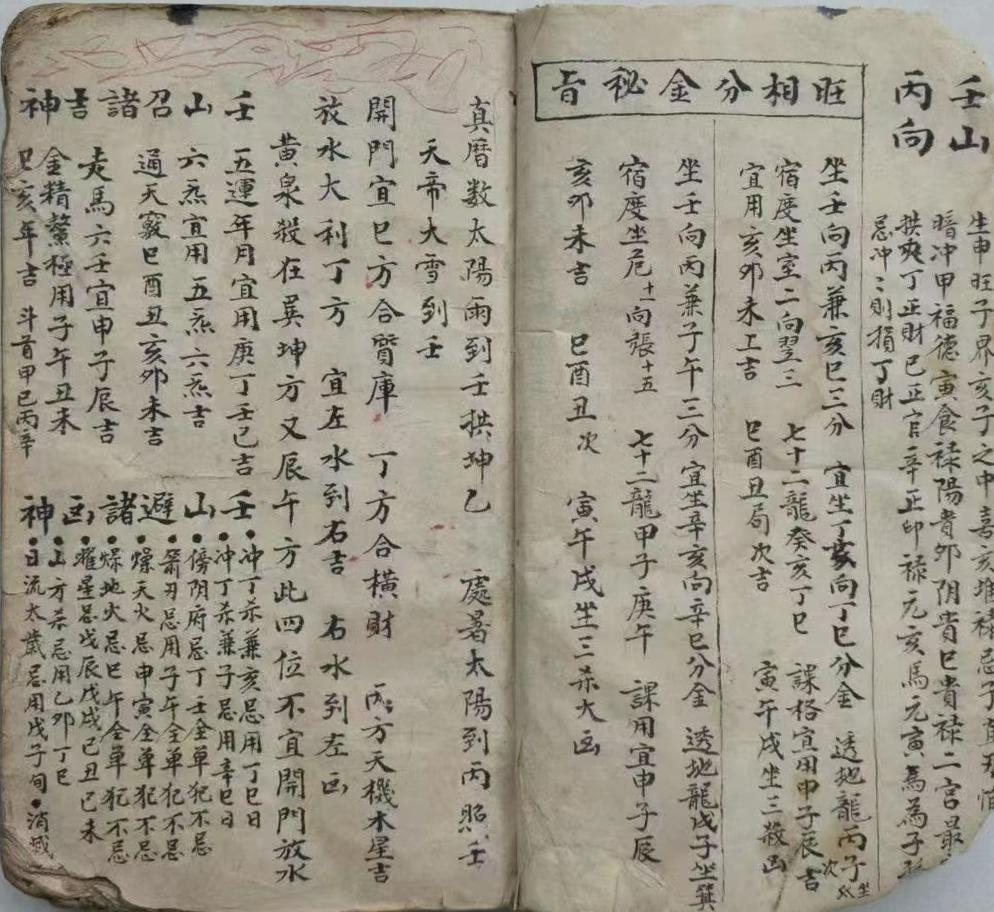 壬山
丙向
生申旺子界亥子之中喜亥堆祿忌子
暗冲甲福德寅食祿陽貴卯阴貴巳貴祿二宮最
拱夾丁正財巳正官辛正印祿元亥馬元寅為為子
忌冲〻則損丁財
旺相分金秘旨
坐壬向丙兼亥巳三分 宜坐丁亥向丁巳分金 透地龍丙子坐
宿度坐室二向翌三 七十二龍癸亥丁巳 課格宜用申子辰吉次
宜用亥卯未上吉 巳酉丑局次吉 寅午戌坐三殺凶
坐壬向丙兼子午三分 宜坐辛亥向辛巳分金 透地龍戊子坐箕
宿度坐危十一向張十五 七十二龍甲子庚午 課用宜申子辰
亥卯未吉 巳酉丑次 寅午戌坐三杀大凶
真曆数太陽雨到壬拱坤乙 處暑太陽到丙照壬
天帝大雪到壬
開門宜巳方合質庫 丁方合橫財 丙方天機木星吉
放水大利丁方 宜左水到右吉 右水到左凶
黄泉殺在巽坤方又辰午方此四位不宜開門放水
壬山召諸吉神
五運年月宜用庚丁壬己吉
六炁宜用五炁六炁吉
通天竅巳酉丑亥卯未吉
走馬六壬宜申子辰吉
金精鰲極用子午丑未
巳亥年吉 斗首甲巳丙辛
壬山避諸凶神
冲丁杀兼亥忌用丁巳日
冲丁杀兼子忌用辛巳日
傍阴府忌丁壬全单犯不忌
箭刃忌用子午全单犯不忌
燥天火忌申寅全单犯不忌
燥地火忌巳午全单犯不忌
曜星忌戊辰戊戌己丑己未
山方杀忌用乙卯丁巳
日流太歲忌用戊子旬●消滅